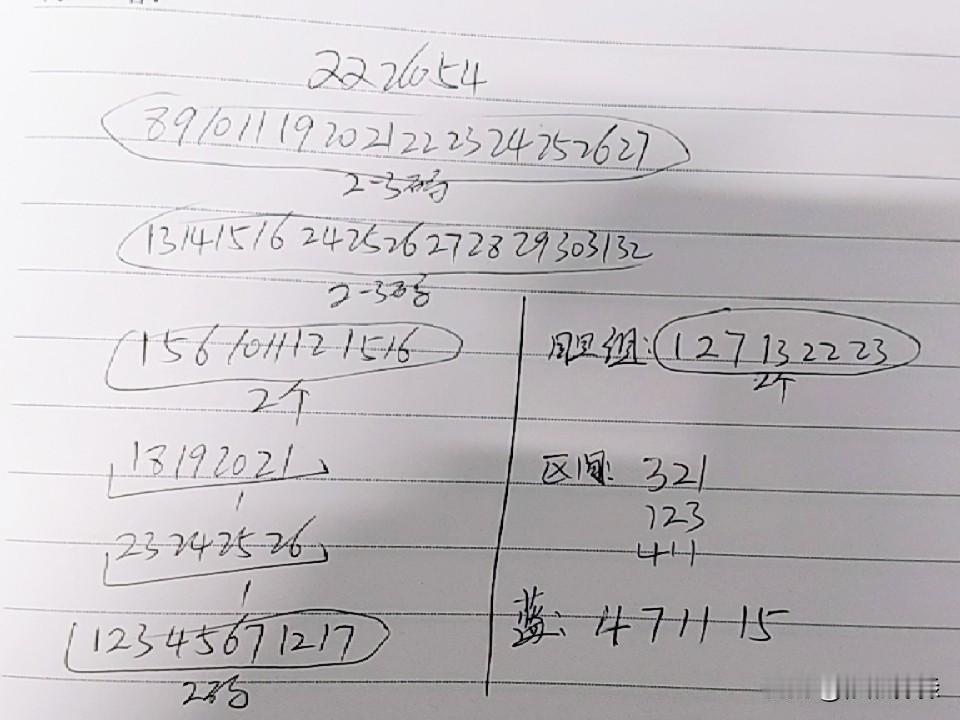 222654
8 9 10 11 19 20 21 22 23 24 25 26 27
2-3码
13 14 15 16 24 25 26 27 28 29 30 31 32
2-3码
1 5 6 10 11 12 15 16
2个
18 19 20 21
1
23 24 25 26
1
1 2 3 4 5 6 7 12 17
2码
胆组: 1 2 7 13 22 23
2个
区间: 321
123
411
蓝: 4 7 11 15